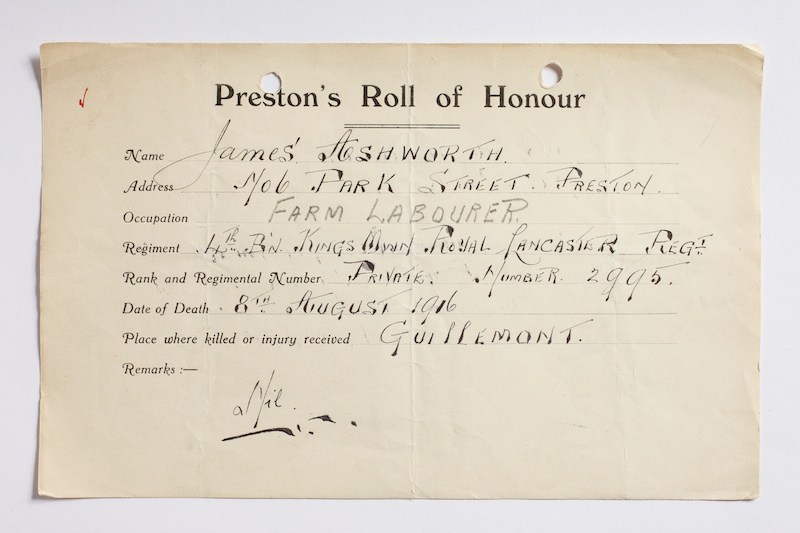 Preston's Roll of Honour
Name James Ashworth.
Address No 6 Park Street. Preston.
Occupation Farm Labourer
Regiment 4th B'n Kings Own Royal Lancaster Regt
Rank and Regimental Number Private. Number. 2995.
Date of Death 8th August 1916
Place where killed or injury received Guillemont.
Remarks :—
Nil.